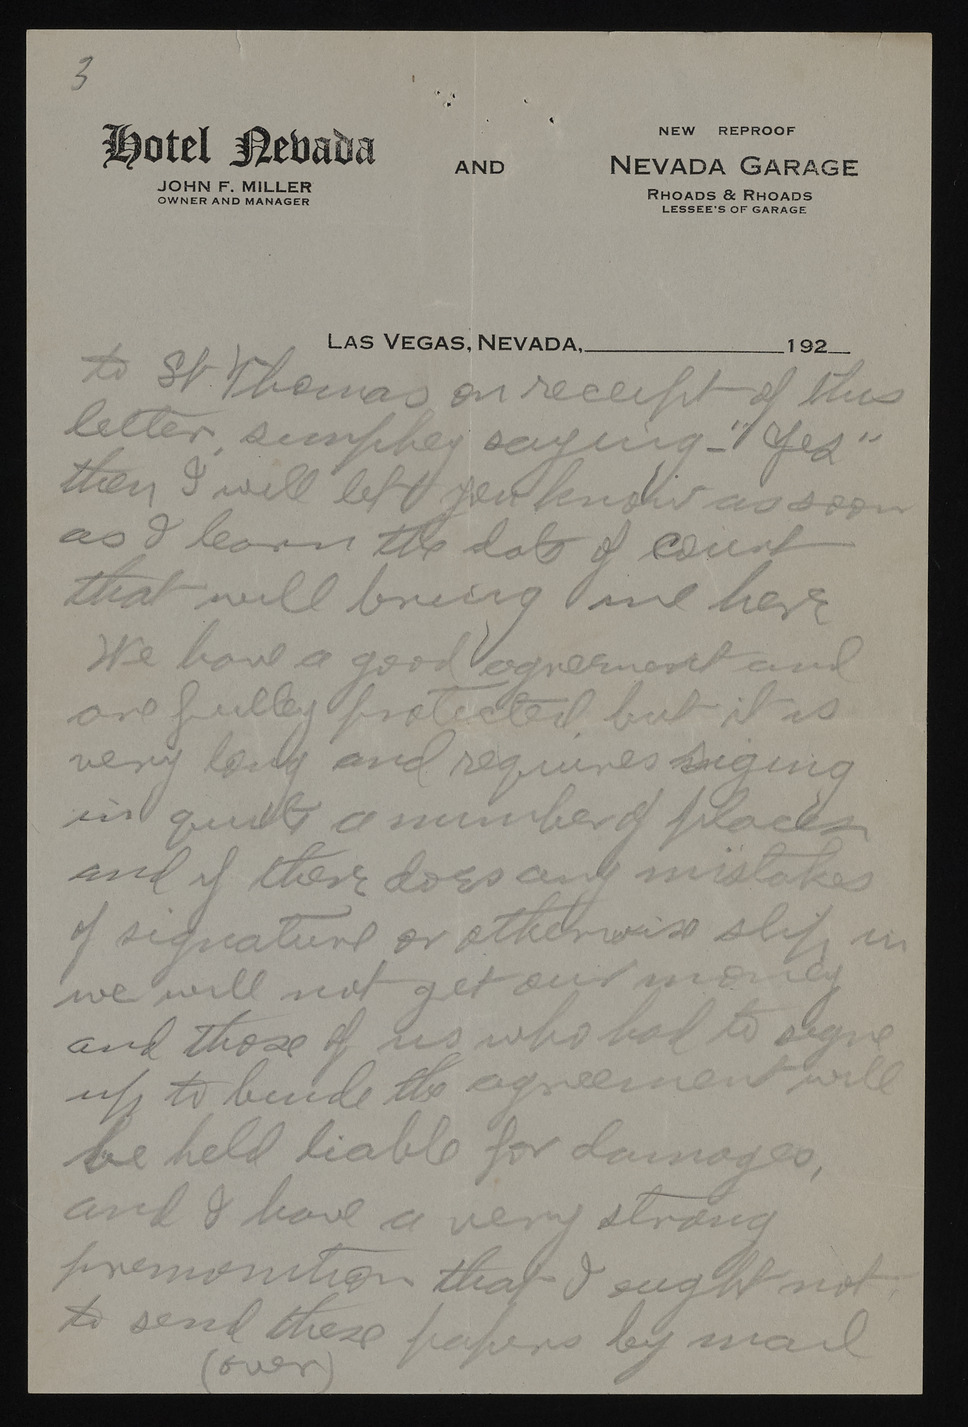 3
Hotel Nevada
JOHN F. MILLER
OWNER AND MANAGER
AND
NEW REPROOF
NEVADA GARAGE
RHOADS & RHOADS
LESSEE'S OF GARAGE
LAS VEGAS, NEVADA, 192
to St. Thomas on receipt of this
letter, simpley saying - "Yes"
then I will let you know as soon
as I learn the date of court
that will bring me here
We have a good agreement and
are fulley protected, but it is
very long and requires siging
in quite a number of places
and if there does any mistakes
of signature or otherwise slip in
we will not get our money
and those of us who had to signe
up to binde the agreement will
be held liable for damages,
and I have a very strong
premonition that I ought not
to send these papers by mail
(over)